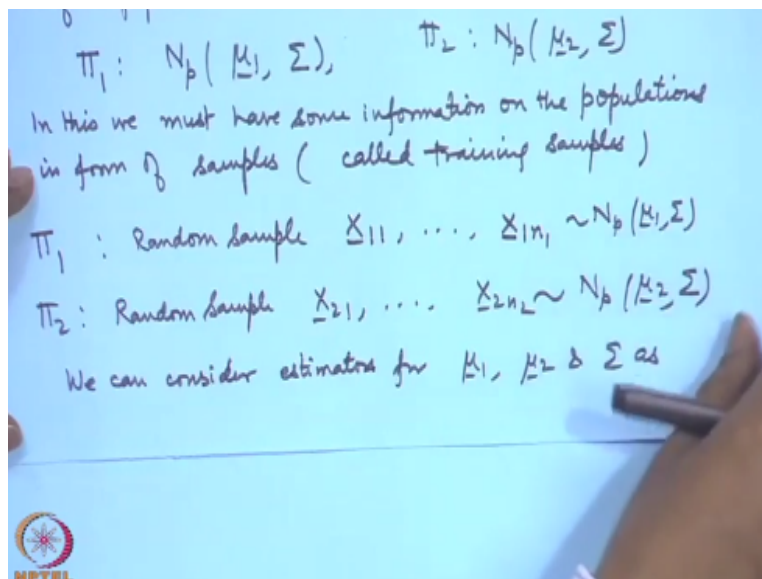 Π₁ : Nₚ( μ₁, Σ), Π₂ : Nₚ( μ₂, Σ)
In this we must have some information on the populations
in form of samples ( called training samples )
Π₁ : Random Sample X₁₁, ...., X₁ₙ₁ ~ Nₚ(μ₁, Σ)
Π₂ : Random Sample X₂₁, .... X₂ₙ₂ ~ Nₚ (μ₂, Σ)
We can consider estimators for μ₁, μ₂ & Σ as
NPTEL